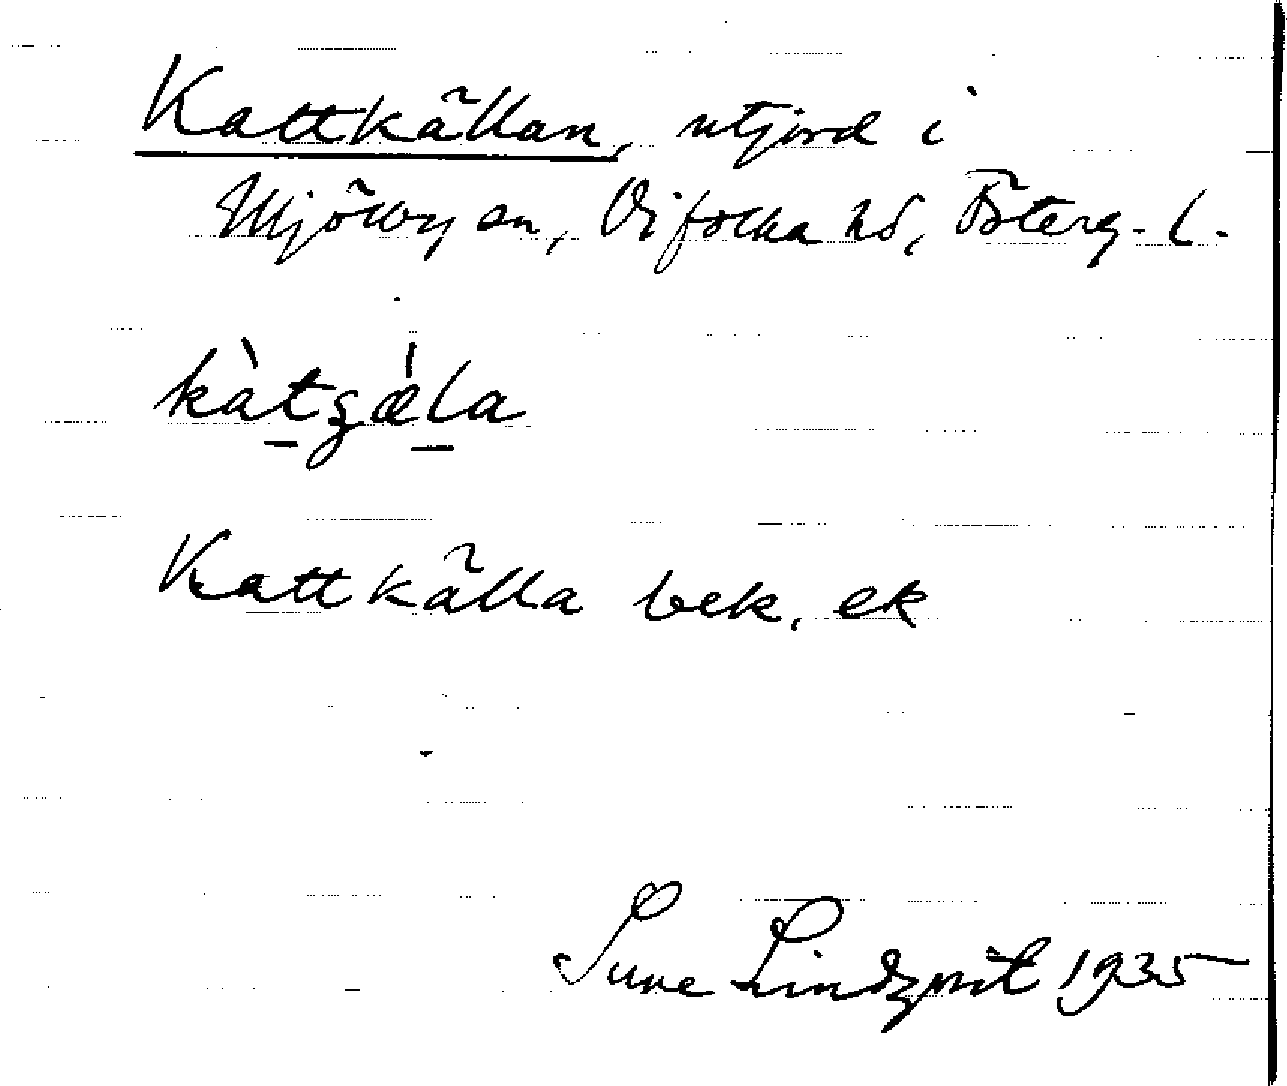 Kattkällan, utjord i
Mjölby sn, Vifolka hd, Österg. l.
kàtʒǽla
Kattkälla bek, ek
Sune Lindqvist 1935